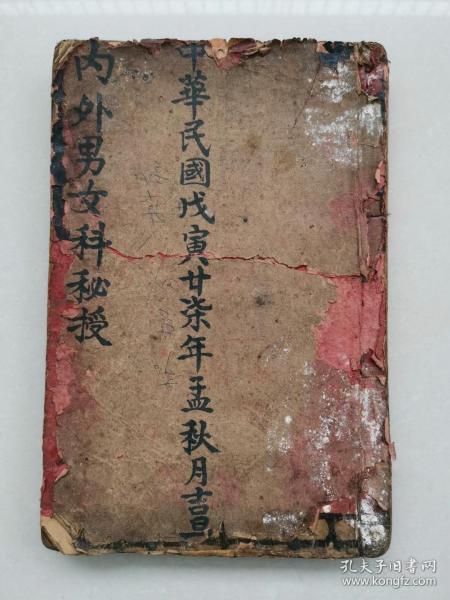 中華民國戊寅廿柒年孟秋月吉旦
内外男女科秘授
孔夫子旧书网
www.kongfz.com